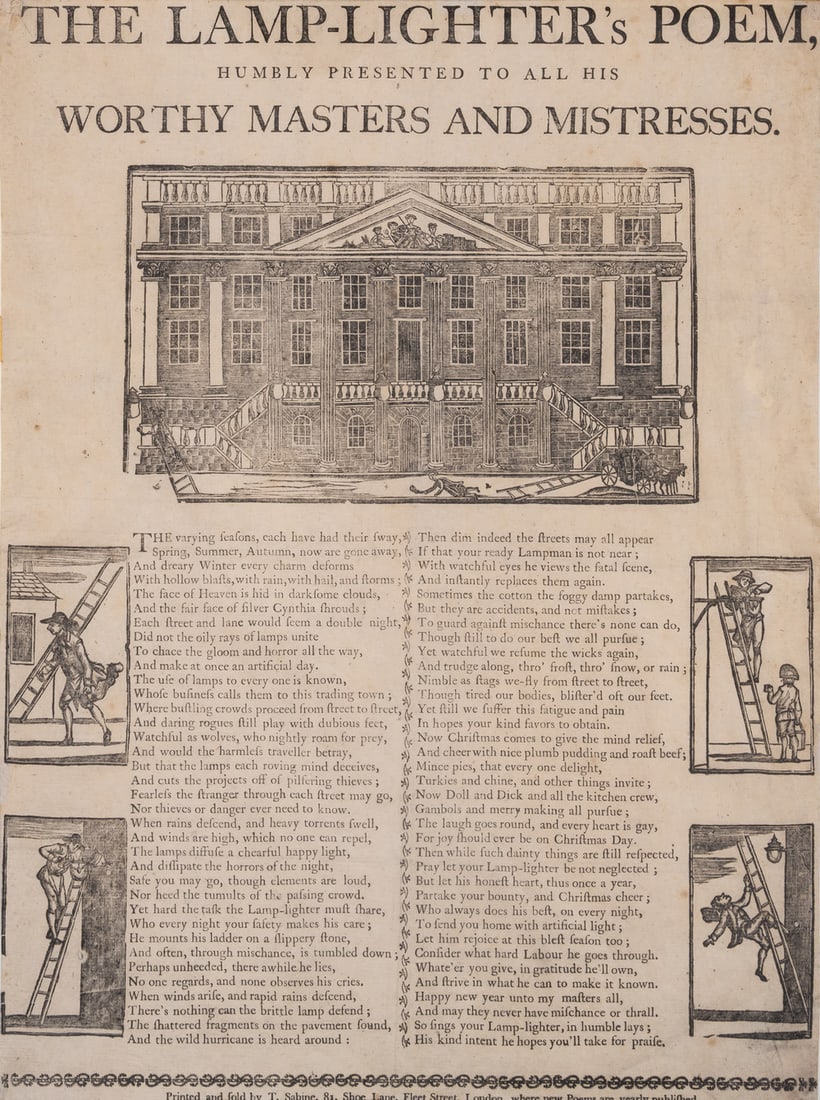 THE LAMP-LIGHTER's POEM,
HUMBLY PRESENTED TO ALL HIS
WORTHY MASTERS AND MISTRESSES.
THE varying ſeaſons, each have had their ſway,
Spring, Summer, Autumn, now are gone away,
And dreary Winter every charm deforms
With hollow blaſts, with rain, with hail, and ſtorms ;
The face of Heaven is hid in darkſome clouds,
And the fair face of ſilver Cynthia ſhrouds ;
Each ſtreet and lane would ſeem a double night,
Did not the oily rays of lamps unite
To chace the gloom and horror all the way,
And make at once an artificial day.
The uſe of lamps to every one is known,
Whoſe buſineſs calls them to this trading town ;
Where buſtling crowds proceed from ſtreet to ſtreet,
And daring rogues ſtill play with dubious feet,
Watchful as wolves, who nightly roam for prey,
And would the harmleſs traveller betray,
But that the lamps each roving mind deceives,
And cuts the projects off of pilfering thieves ;
Fearleſs the ſtranger through each ſtreet may go,
Nor thieves or danger ever need to know.
When rains deſcend, and heavy torrents ſwell,
And winds are high, which no one can repel,
The lamps diffuſe a chearful happy light,
And diſſipate the horrors of the night,
Safe you may go, though elements are loud,
Nor heed the tumults of the paſsing crowd.
Yet hard the taſk the Lamp-lighter muſt ſhare,
Who every night your ſafety makes his care ;
He mounts his ladder on a ſlippery ſtone,
And often, through miſchance, is tumbled down ;
Perhaps unheeded, there awhile he lies,
No one regards, and none obſerves his cries.
When winds ariſe, and rapid rains deſcend,
There's nothing can the brittle lamp defend ;
The ſhattered fragments on the pavement ſound,
And the wild hurricane is heard around :
Then dim indeed the ſtreets may all appear
If that your ready Lampman is not near ;
With watchful eyes he views the fatal ſcene,
And inſtantly replaces them again.
Sometimes the cotton the foggy damp partakes,
But they are accidents, and not miſtakes ;
To guard againſt miſchance there's none can do,
Though ſtill to do our beſt we all purſue ;
Yet watchful we reſume the wicks again,
And trudge along, thro' froſt, thro' ſnow, or rain ;
Nimble as ſtags we-fly from ſtreet to ſtreet,
Though tired our bodies, bliſter'd oft our feet.
Yet ſtill we ſuffer this fatigue and pain
In hopes your kind favors to obtain.
Now Chriſtmas comes to give the mind relief,
And cheer with nice plumb pudding and roaſt beef;
Mince pies, that every one delight,
Turkies and chine, and other things invite ;
Now Doll and Dick and all the kitchen crew,
Gambols and merry making all purſue ;
The laugh goes round, and every heart is gay,
For joy ſhould ever be on Chriſtmas Day.
Then while ſuch dainty things are ſtill reſpected,
Pray let your Lamp-lighter be not neglected ;
But let his honeſt heart, thus once a year,
Partake your bounty, and Chriſtmas cheer ;
Who always does his beſt, on every night,
To ſend you home with artificial light ;
Let him rejoice at this bleſt ſeaſon too ;
Conſider what hard Labour he goes through.
Whate'er you give, in gratitude he'll own,
And ſtrive in what he can to make it known.
Happy new year unto my maſters all,
And may they never have miſchance or thrall.
So ſings your Lamp-lighter, in humble lays ;
His kind intent he hopes you'll take for praiſe.
Printed and ſold by T. Sabine, 81, Shoe Lane, Fleet Street, London, where new Poems are yearly publiſhed